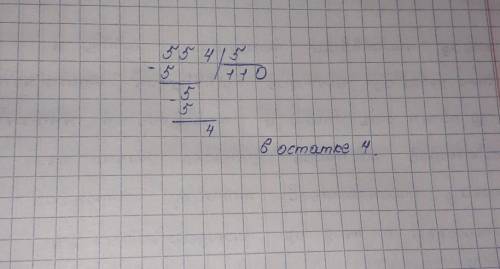 554 | 5
- 5 110
- 5
5
4
в остатке 4.